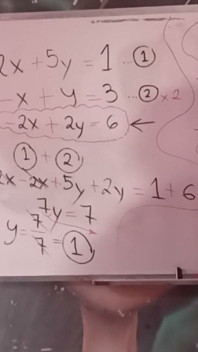 2x + 5y = 1 ... ①
-x + y = 3 ... ② × 2
- 2x + 2y = 6 ←
① + ②
2x - 2x + 5y + 2y = 1 + 6
7y = 7
y = 7/7 = ①